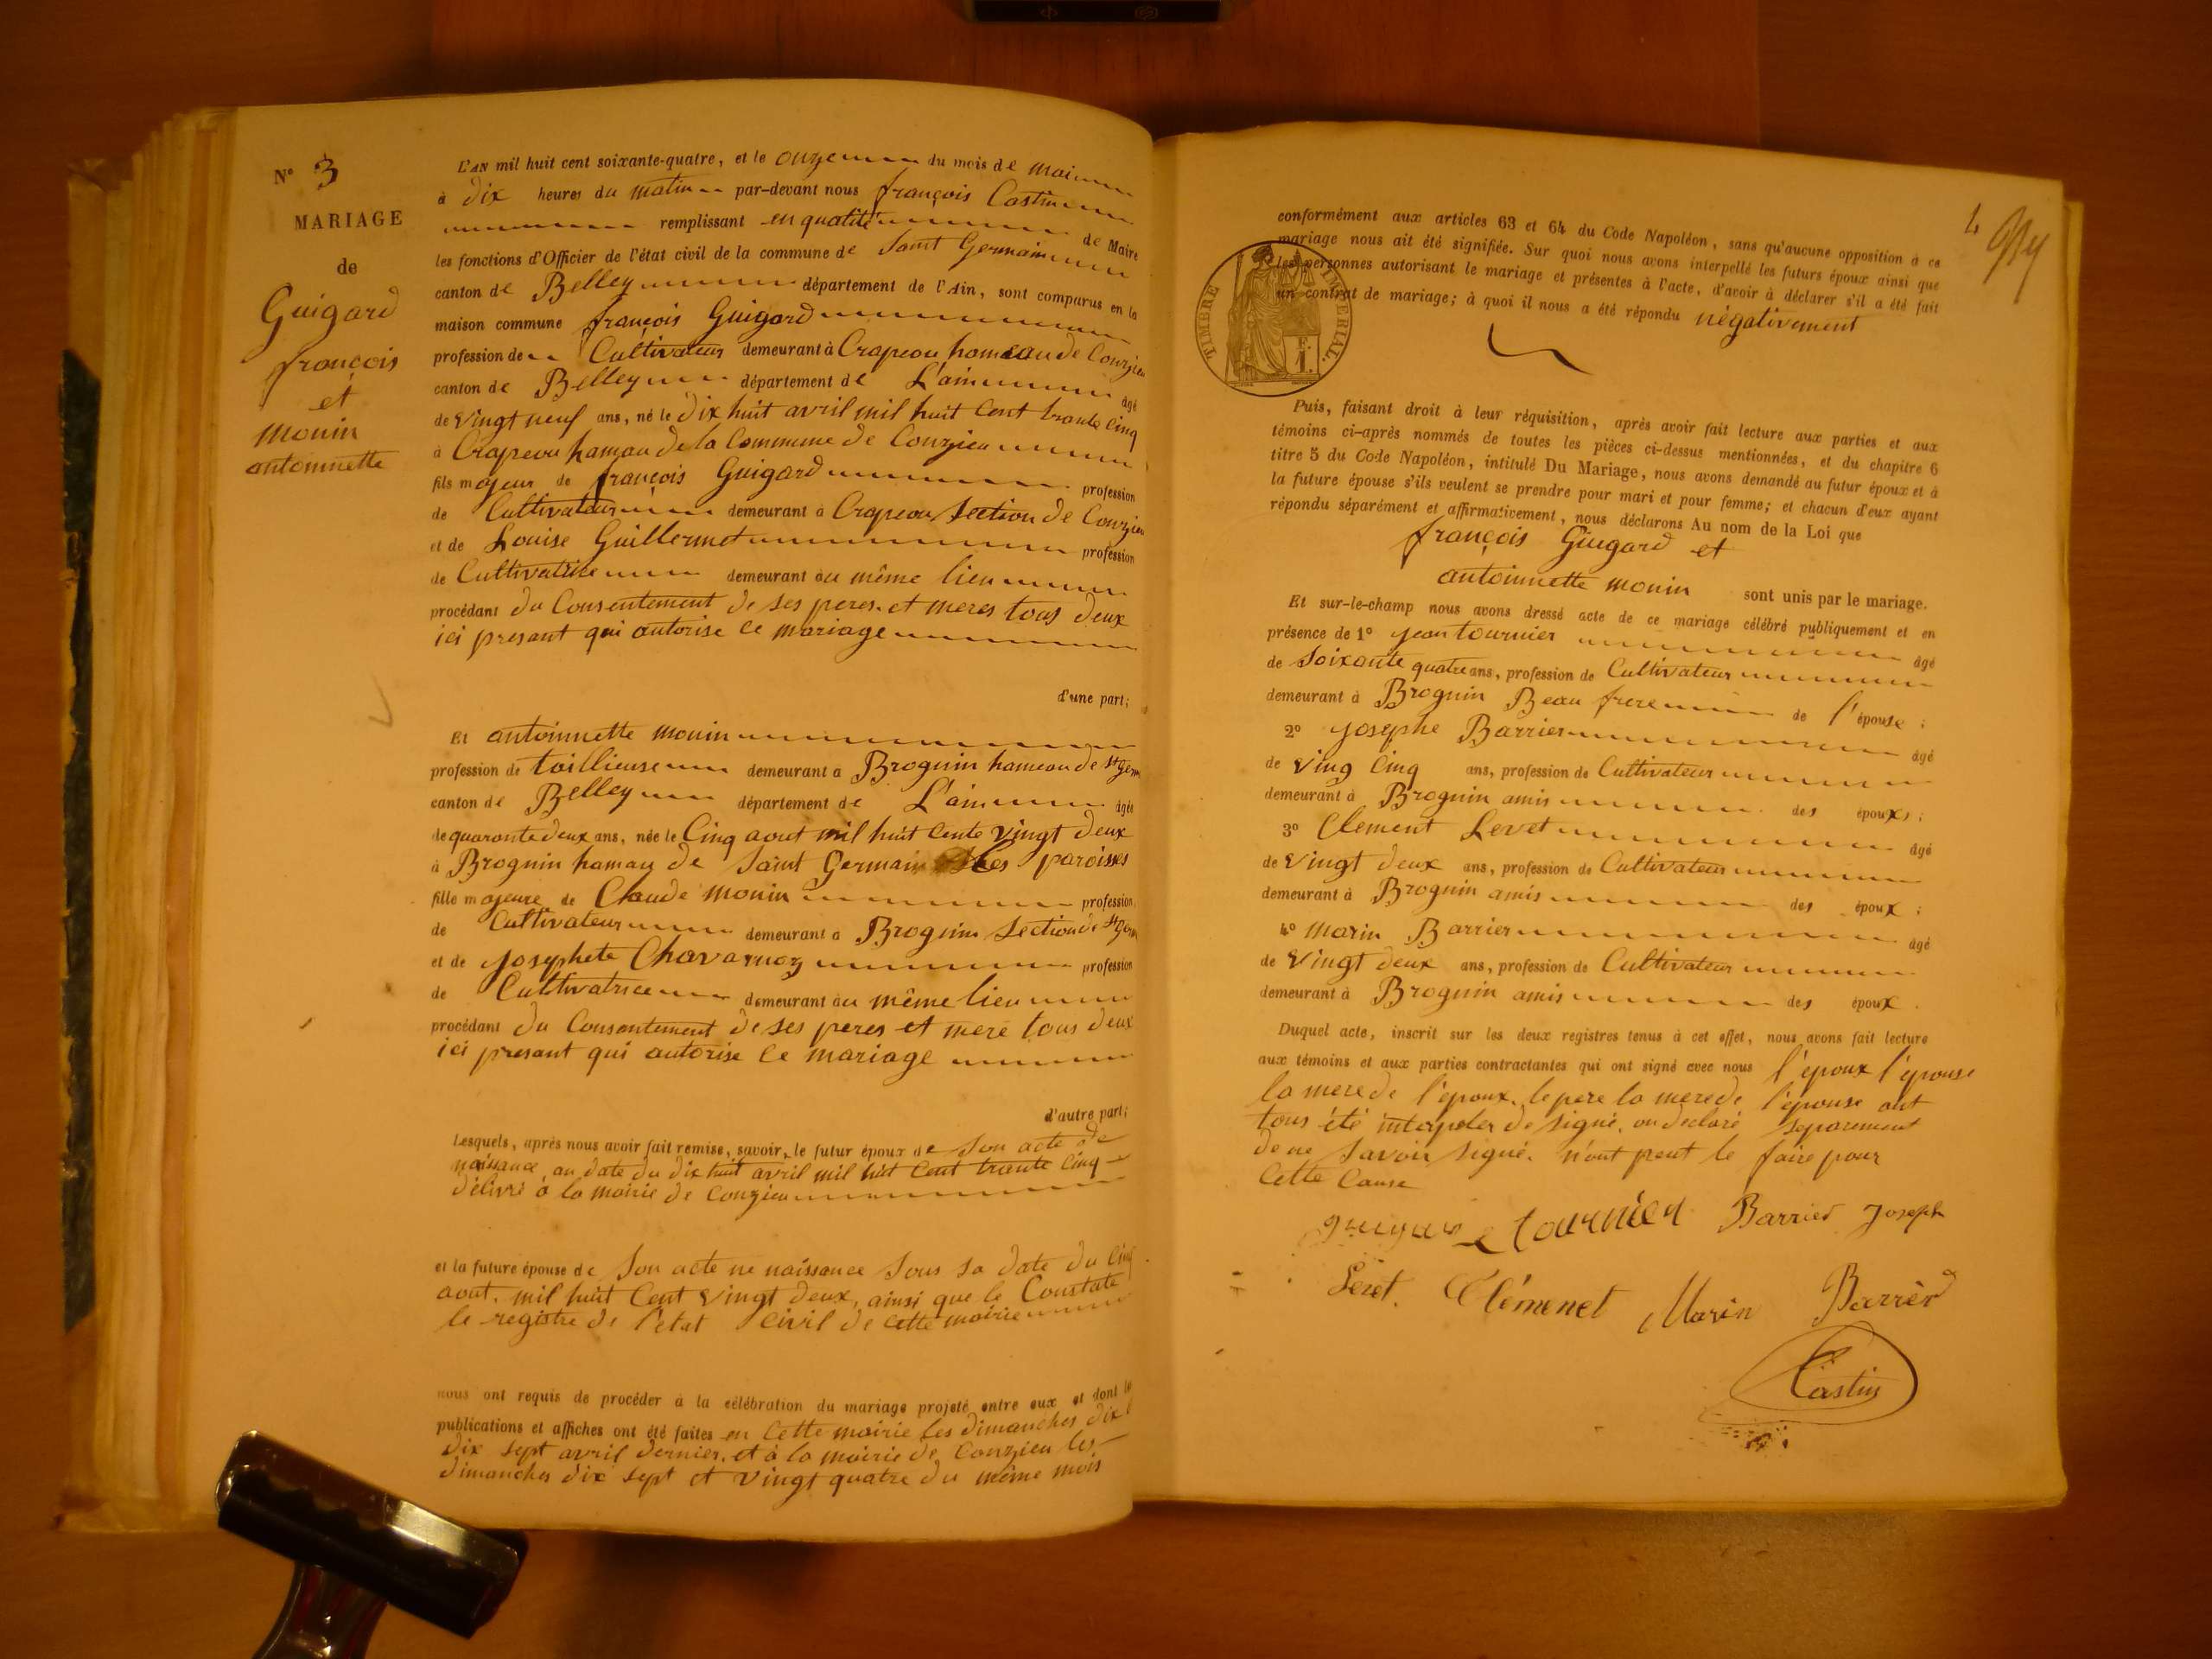 N° 3
MARIAGE
de
Guigard
françois
et
monin
antoinnette
L'AN mil huit cent soixante-quatre, et le onze du mois de mai
à dix heures du matin par-devant nous françois Castin
remplissant en qualité de Maire
les fonctions d'Officier de l'état civil de la commune de Saint Germain
canton de Belley département de l'Ain, sont comparus en la
maison commune françois Guigard
profession de Cultivateur demeurant à Crapeou hameau de Conzieu
canton de Belley département de L'ain âgé
de vingt neuf ans, né le dix huit avril mil huit cent trante cinq
à Crapeou hamau de la Commune de Conzieu
fils majeur de françois Guigard profession
de Cultivateur demeurant à Crapeou Section de Conzieu
et de Louise Guillermet profession
de Cultivatrice demeurant au même lieu
procédant du Consentement de ses peres et meres tous deux
ici presant qui autorise le mariage
d'une part;
Et antoinnette monin
profession de taillieuse demeurant a Brognin hameau de St Germ
canton de Belley département de L'ain âgée
de quarante deux ans, née le Cinq aout mil huit cente vingt deux
à Brognin hamau de Saint Germain les paroisses
fille majeure de Claude monin profession
de Cultivateur demeurant a Brognin Section de St Germ
et de Josephete Chavarnoz profession
de Cultivatrice demeurant au même lieu
procédant du Consantement de ses peres et mere tous deux
ici presant qui autorise le mariage
d'autre part;
Lesquels, après nous avoir fait remise, savoir, le futur époux de Son acte de
naissance au date du dix huit avril mil huit cent trante cinq
délivré à la mairie de Conzieu
et la future épouse de Son acte ne naissance sous sa date du cinq
aout mil huit Cent vingt deux, ainsi que le Constate
le registre de l'état civil de cette mairie
nous ont requis de procéder à la célébration du mariage projeté entre eux et dont les
publications et affiches ont été faites en cette mairie les dimanches dix
dix sept avril dernier, et à la mairie de Conzieu les
dimanches dix sept et vingt quatre du même mois
4
conformément aux articles 63 et 64 du Code Napoléon, sans qu'aucune opposition à ce
mariage nous ait été signifiée. Sur quoi nous avons interpellé les futurs époux ainsi que
les personnes autorisant le mariage et présentes à l'acte, d'avoir à déclarer s'il a été fait
un contrat de mariage; à quoi il nous a été répondu négativement
TIMBRE IMPERIAL.
F.
1.
Puis, faisant droit à leur réquisition, après avoir fait lecture aux parties et aux
témoins ci-après nommés de toutes les pièces ci-dessus mentionnées, et du chapitre 6
titre 5 du Code Napoléon, intitulé Du Mariage, nous avons demandé au futur époux et à
la future épouse s'ils veulent se prendre pour mari et pour femme; et chacun d'eux ayant
répondu séparément et affirmativement, nous déclarons Au nom de la Loi que
françois Guigard et
antoinnette monin sont unis par le mariage.
Et sur-le-champ nous avons dressé acte de ce mariage célébré publiquement et en
présence de 1° jean tournier âgé
de Soixante quatre ans, profession de Cultivateur
demeurant à Brognin Beau frere de l'épouse;
2° josephe Barrier âgé
de ving Cinq ans, profession de Cultivateur
demeurant à Brognin amis des époux;
3° Clement Levet âgé
de vingt deux ans, profession de Cultivateur
demeurant à Brognin amis des époux;
4° marin Barrier âgé
de vingt deux ans, profession de Cultivateur
demeurant à Brognin amis des époux.
Duquel acte, inscrit sur les deux registres tenus à cet effet, nous avons fait lecture
aux témoins et aux parties contractantes qui ont signé avec nous l'époux l'épouse
la mere de l'époux, le pere la mere de l'épouse ont
tous été interpeler de signé, on declaré séparement
de ne savoir signé. n'ont peut le faire pour
cette Cause
tournier Barrier Joseph
Levet. Clémenet Marin Barrier
Castin